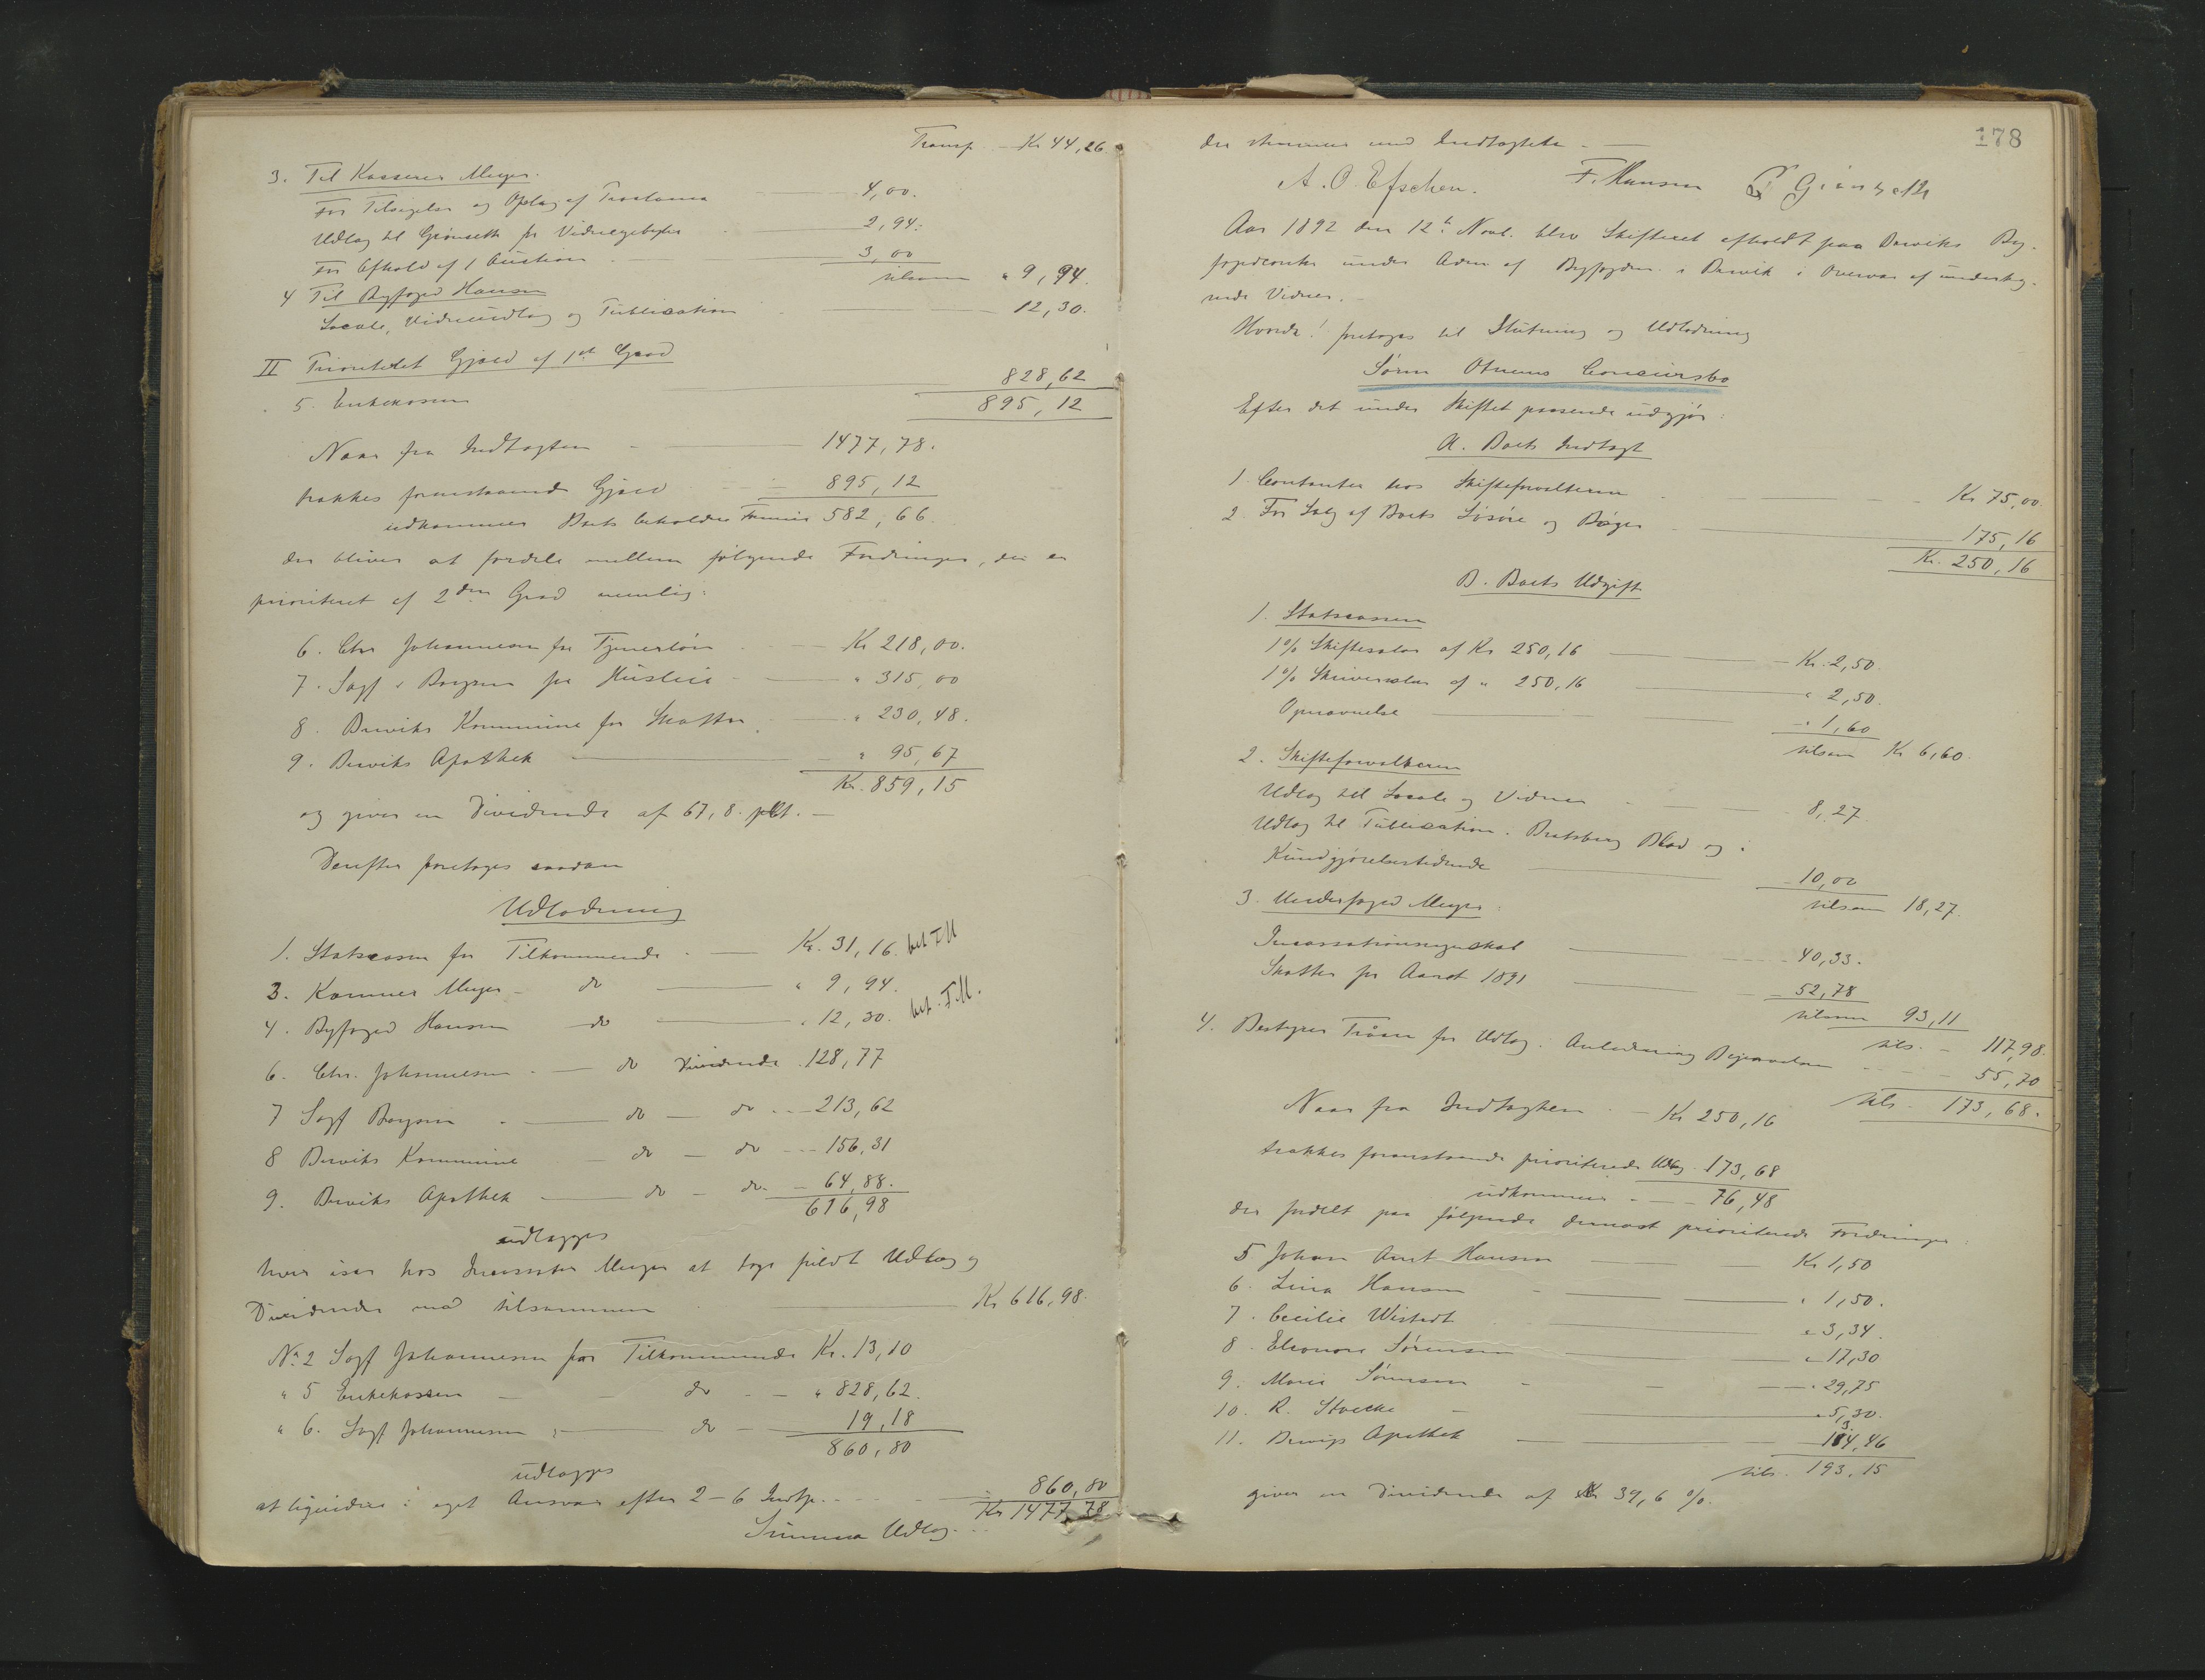 Transp. Kr 44,26
3. Til Kasserer Meyer.
For Tilsigelse og Opslag af 4,00.
Udlag til Grønseth for Vidnegebyhr 2,94.
For Afhold af 1 Auction 3,00
tilsam " 9,94.
4 Til Byfoged Hansen
Locale, Vidneudlag og Publication 12,30.
II Prioriteret Gjæld af 1ste Grad
5. Enkekassen 828,62
895,12
Naar fra Indtægten 1477,78.
trækkes foranstaaende Gjæld 895,12
udkommer Boets beholdne Formue 582,66.
der bliver at fordele mellem følgende Fordringer, der er
prioriteret af 2den Grad nemlig:
6. Chr Johannesen for Tjenerløn Kr 218,00.
7. Sagf. Borgsen for Husleie " 315,00
8. Breviks Kommune for Skatter " 230,48.
9. Breviks Apothek " 95,67
Kr. 859,15
og giver en Dividende af 67,8. pCt. —
Derefter foretages saadan
Udlodning
1. Statscassen for Tilkommende Kr. 31,16. bet FH
3. Kæmner Meyer do " 9,94.
4. Byfoged Hansen do " 12,30. bet. F.H.
6. Chr. Johannesen do Dividende 128,77
7 Sagf Borgsen do — do 213,62
8 Breviks Kommune do — do 156,31
9. Breviks Apothek do — do. 64,88.
616,98
udlægges
hver især hos Incassator Meyer at tage fuldt Udlæg og
Dividende med tilsammen Kr 616,98.
No. 2 Sagf Johannesen for Tilkommende Kr. 13,10
" 5 Enkekassen do " 828,62.
" 6. Sagf Johannesen do 19,18
860,80
udlægges
at liqvidere i eget Ansvar efter 2–6 Indtp. 860,80
Summa Udlæg Kr 1477,78
178
der stemmer med Indtægten. —
A. O. Efschen. F. Hansen G Grønseth
Aar 1892 den 12te Novb. blev Skifteret afholdt paa Breviks By-
fogedcontor under Adm af Byfogden i Brevik i Overvær af underteg-
nede Vidner.
Hvorda! foretoges til Slutning og Udlodning
Søren Otnems Concursbo
Efter det under Skiftet passerede udgjør:
A. Boets Indtægt
1 Contanter hos Skifteforvalteren Kr 75,00
2. For Salg af Boets Løsøre og Bøger 175,16
Kr. 250,16
B. Boets Udgift
1. Statscassen
1% Skiftesalær af Kr 250,16 Kr. 2,50.
1% Skriversalær af " 250,16 " 2,50.
Opnævnelse " 1,60
tilsam Kr 6,60.
2. Skifteforvalteren
Udlæg til Locale og Vidner 8,27.
Udlæg til Publication i Bratsberg Blad og i
Kundgjørelsestidende 10,00
tilsam 18,27.
3. Underfoged Meyer:
Incassationsregnskab 40,33.
Skatter for Aaret 1891 52,78
tilsam 93,11
tils. 117,98.
4. Bestyrer for Udlæg. 55,70
tils. 173,68.
Naar fra Indtægten Kr 250,16
trækkes foranstaaende prioriterede Udlæg 173,68
udkommer 76,48
der fordelt paa følgende dernæst prioriterede Fordringer:
5 Johan Amt Hansen Kr 1,50
6. Lina Hansen " 1,50.
7. Cecilie Wistedt " 3,34.
8. Eleonore Sørensen " 17,30
9. Marie Sørensen " 29,75
10. R. Stoecke " 5,30.
11. Brevigs Apothek 134,46
tils. 193,15
giver en Dividende af 39,6 %.